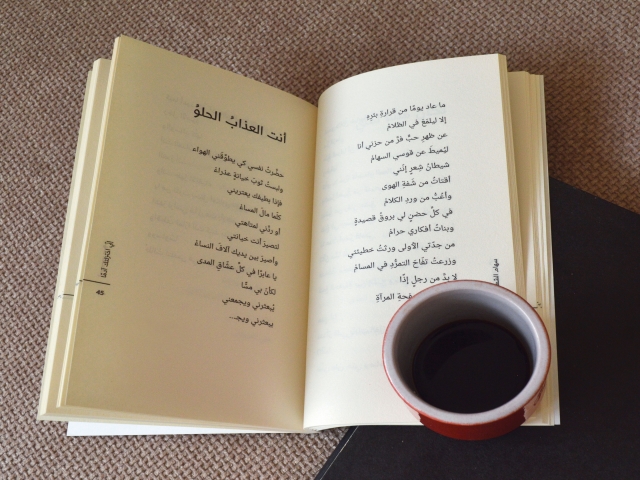 أنت العذابُ الحلوُ
حضّرتُ نفسي كي يطوّقني الهواء
ولبستُ ثوبَ خيانةٍ عذراءَ
فإذا بطيفك يعتريني
كلّما مالَ المساءُ
أو ردّني لمتاهتي
لتصيرَ أنت خيانتي
وأصيرَ بين يديك آلافَ النساءْ
يا عابرًا في كلّ عشّاقِ المدى
لكأنّ بي مسًّا
يُبعثرني ويجمعني
يبعثرني ويجـ...
45
ما عاد يومًا من قرارةِ بئرِهِ
إلا ليلمَعَ في الظلامْ
عن ظهرِ حبٍّ فرَّ من حزني أنا
ليُميطَ عن قوسي السهامْ
شيطانُ شِعرٍ إنّني
أقتاتُ من شَفةِ الهوى
وأعُبُّ من وردِ الكلامْ
في كلِّ حضنٍ لي بروقُ قصيدةٍ
وبناتُ أفكاري حرامْ
من جدّتي الأولى ورثتُ خطيئتي
وزرعتُ تفّاحَ التمرُّدِ في المسامْ
لا بدَّ من رجلٍ إذًا
المرآةِ
سهاد